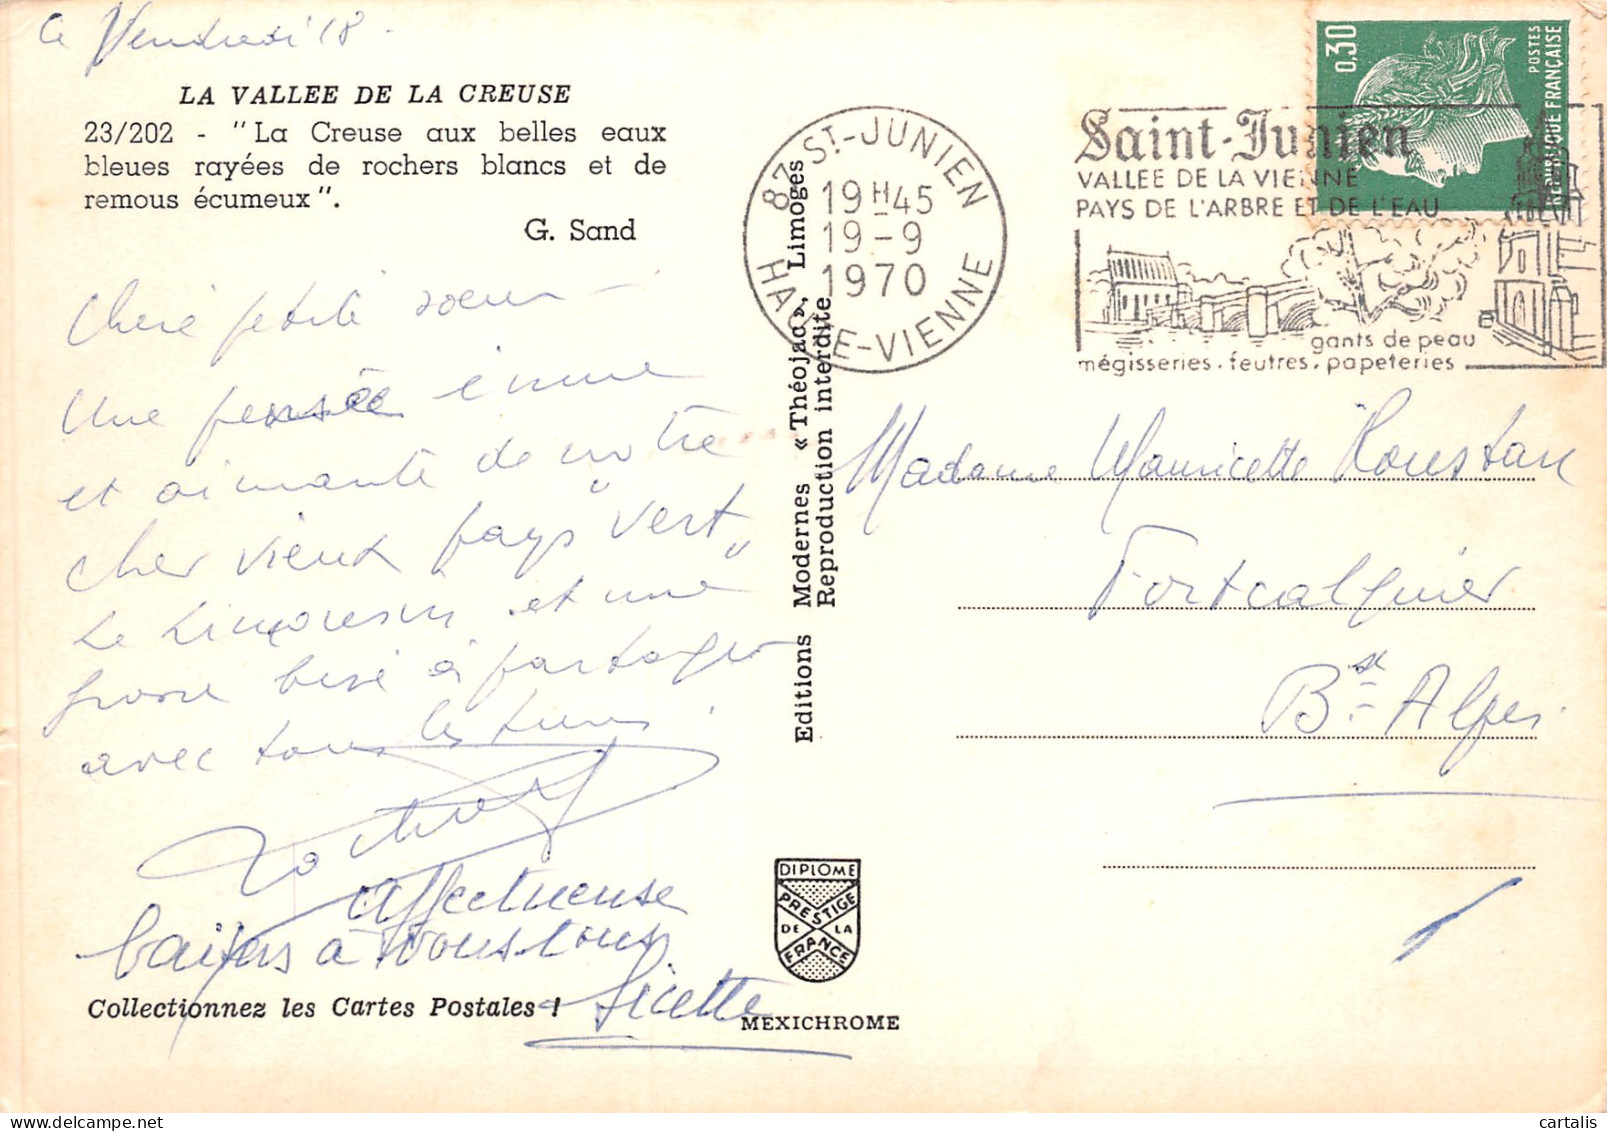 Ce Vendredi 18.
LA VALLEE DE LA CREUSE
23/202 - "La Creuse aux belles eaux
bleues rayées de rochers blancs et de
remous écumeux".
G. Sand
Chère petite soeur -
Une pensée émue
et aimante de notre
cher vieux "pays vert"
Le Limousin et une
grosse bise à partager
avec tous les tiens.
affectueuse
baisers à vous tous
Collectionnez les Cartes Postales !
Editions Modernes « Théojac », Limoges
Reproduction interdite
DIPLOME
PRESTIGE
DE LA
FRANCE
MEXICHROME
87 ST-JUNIEN
19H45
19-9
1970
HAUTE-VIENNE
Saint-Junien
VALLEE DE LA VIENNE
PAYS DE L'ARBRE ET DE L'EAU
gants de peau
mégisseries. feutres. papeteries
0,30
POSTES
REPUBLIQUE FRANÇAISE
Madame Mauricette Roustan
Forcalquier
Bses Alpes.
cartalis